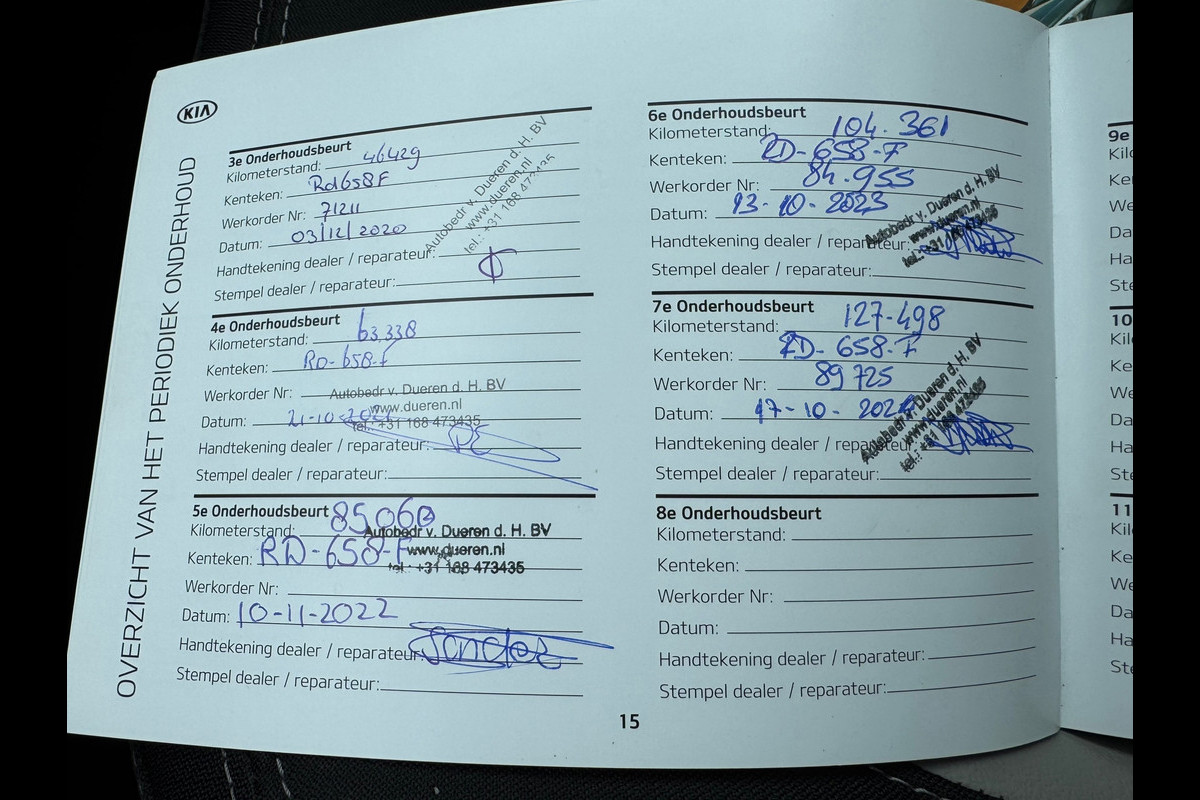 KIA
OVERZICHT VAN HET PERIODIEK ONDERHOUD
3e Onderhoudsbeurt
Kilometerstand: 46429
Kenteken: Rd658F
Werkorder Nr: 71211
Datum: 03/12/2020
Handtekening dealer / reparateur:
Stempel dealer / reparateur:
Autobedr v. Dueren d. H. BV
www.dueren.nl
tel.: +31 168 473435
4e Onderhoudsbeurt
Kilometerstand: 63,338
Kenteken: RD-658-F
Werkorder Nr:
Autobedr v. Dueren d. H. BV
www.dueren.nl
Datum: 21-10
tel.: +31 168 473435
Handtekening dealer / reparateur:
Stempel dealer / reparateur:
5e Onderhoudsbeurt
Kilometerstand: 85,06
Autobedr v. Dueren d. H. BV
Kenteken: RD-658-F
www.dueren.nl
tel.: +31 168 473435
Werkorder Nr:
Datum: 10-11-2022
Handtekening dealer / reparateur:
Stempel dealer / reparateur:
6e Onderhoudsbeurt
Kilometerstand: 104.361
Kenteken: RD-658-F
Werkorder Nr: 84.955
Datum: 13-10-2023
Handtekening dealer / reparateur:
Stempel dealer / reparateur:
Autobedr v. Dueren d. H. BV
www.dueren.nl
tel.: +31 168 473435
7e Onderhoudsbeurt
Kilometerstand: 127-498
Kenteken: RD-658-F
Werkorder Nr: 89725
Datum: 17-10-2024
Handtekening dealer / reparateur:
Stempel dealer / reparateur:
Autobedr v. Dueren d. H. BV
www.dueren.nl
tel.: +31 168 473435
8e Onderhoudsbeurt
Kilometerstand:
Kenteken:
Werkorder Nr:
Datum:
Handtekening dealer / reparateur:
Stempel dealer / reparateur:
15
9e
Kilo
Ke
We
Da
Ha
Ste
10
Kil
Ke
We
Da
Ha
Ste
11
Kil
Ke
We
Da
Ha
Ste